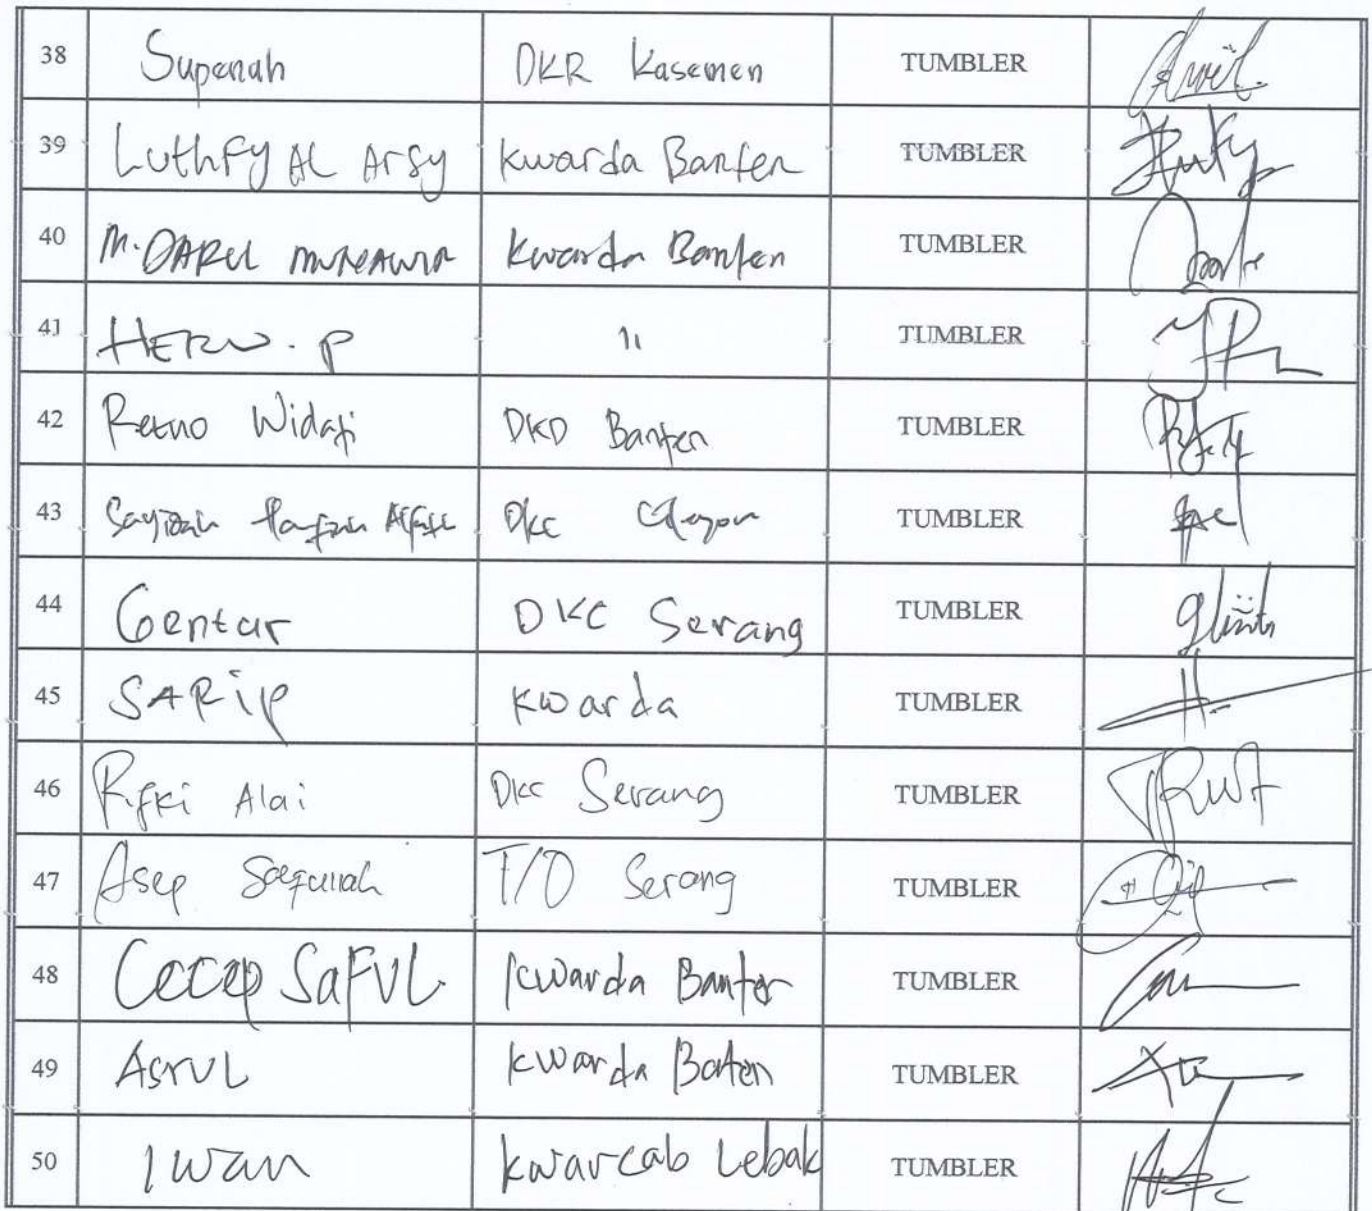 38 Supenah DKR Kasemen TUMBLER
39 Luthfy AL Arsy Kwarda Banten TUMBLER
40 M. DARUL MUNAWIR Kwarda Banten TUMBLER
41 HERW. P 11 TUMBLER
42 Retno Widati DKD Banten TUMBLER
43 DKC Cilegon TUMBLER
44 Gentur DKC Serang TUMBLER
45 SARIP Kwarda TUMBLER
46 Rifki Alai DKC Serang TUMBLER
47 Asep Saefullah T/O Serang TUMBLER
48 Cecep SaFUL Kwarda Banten TUMBLER
49 ASrUL Kwarda Banten TUMBLER
50 Iwan Kwarcab Lebak TUMBLER